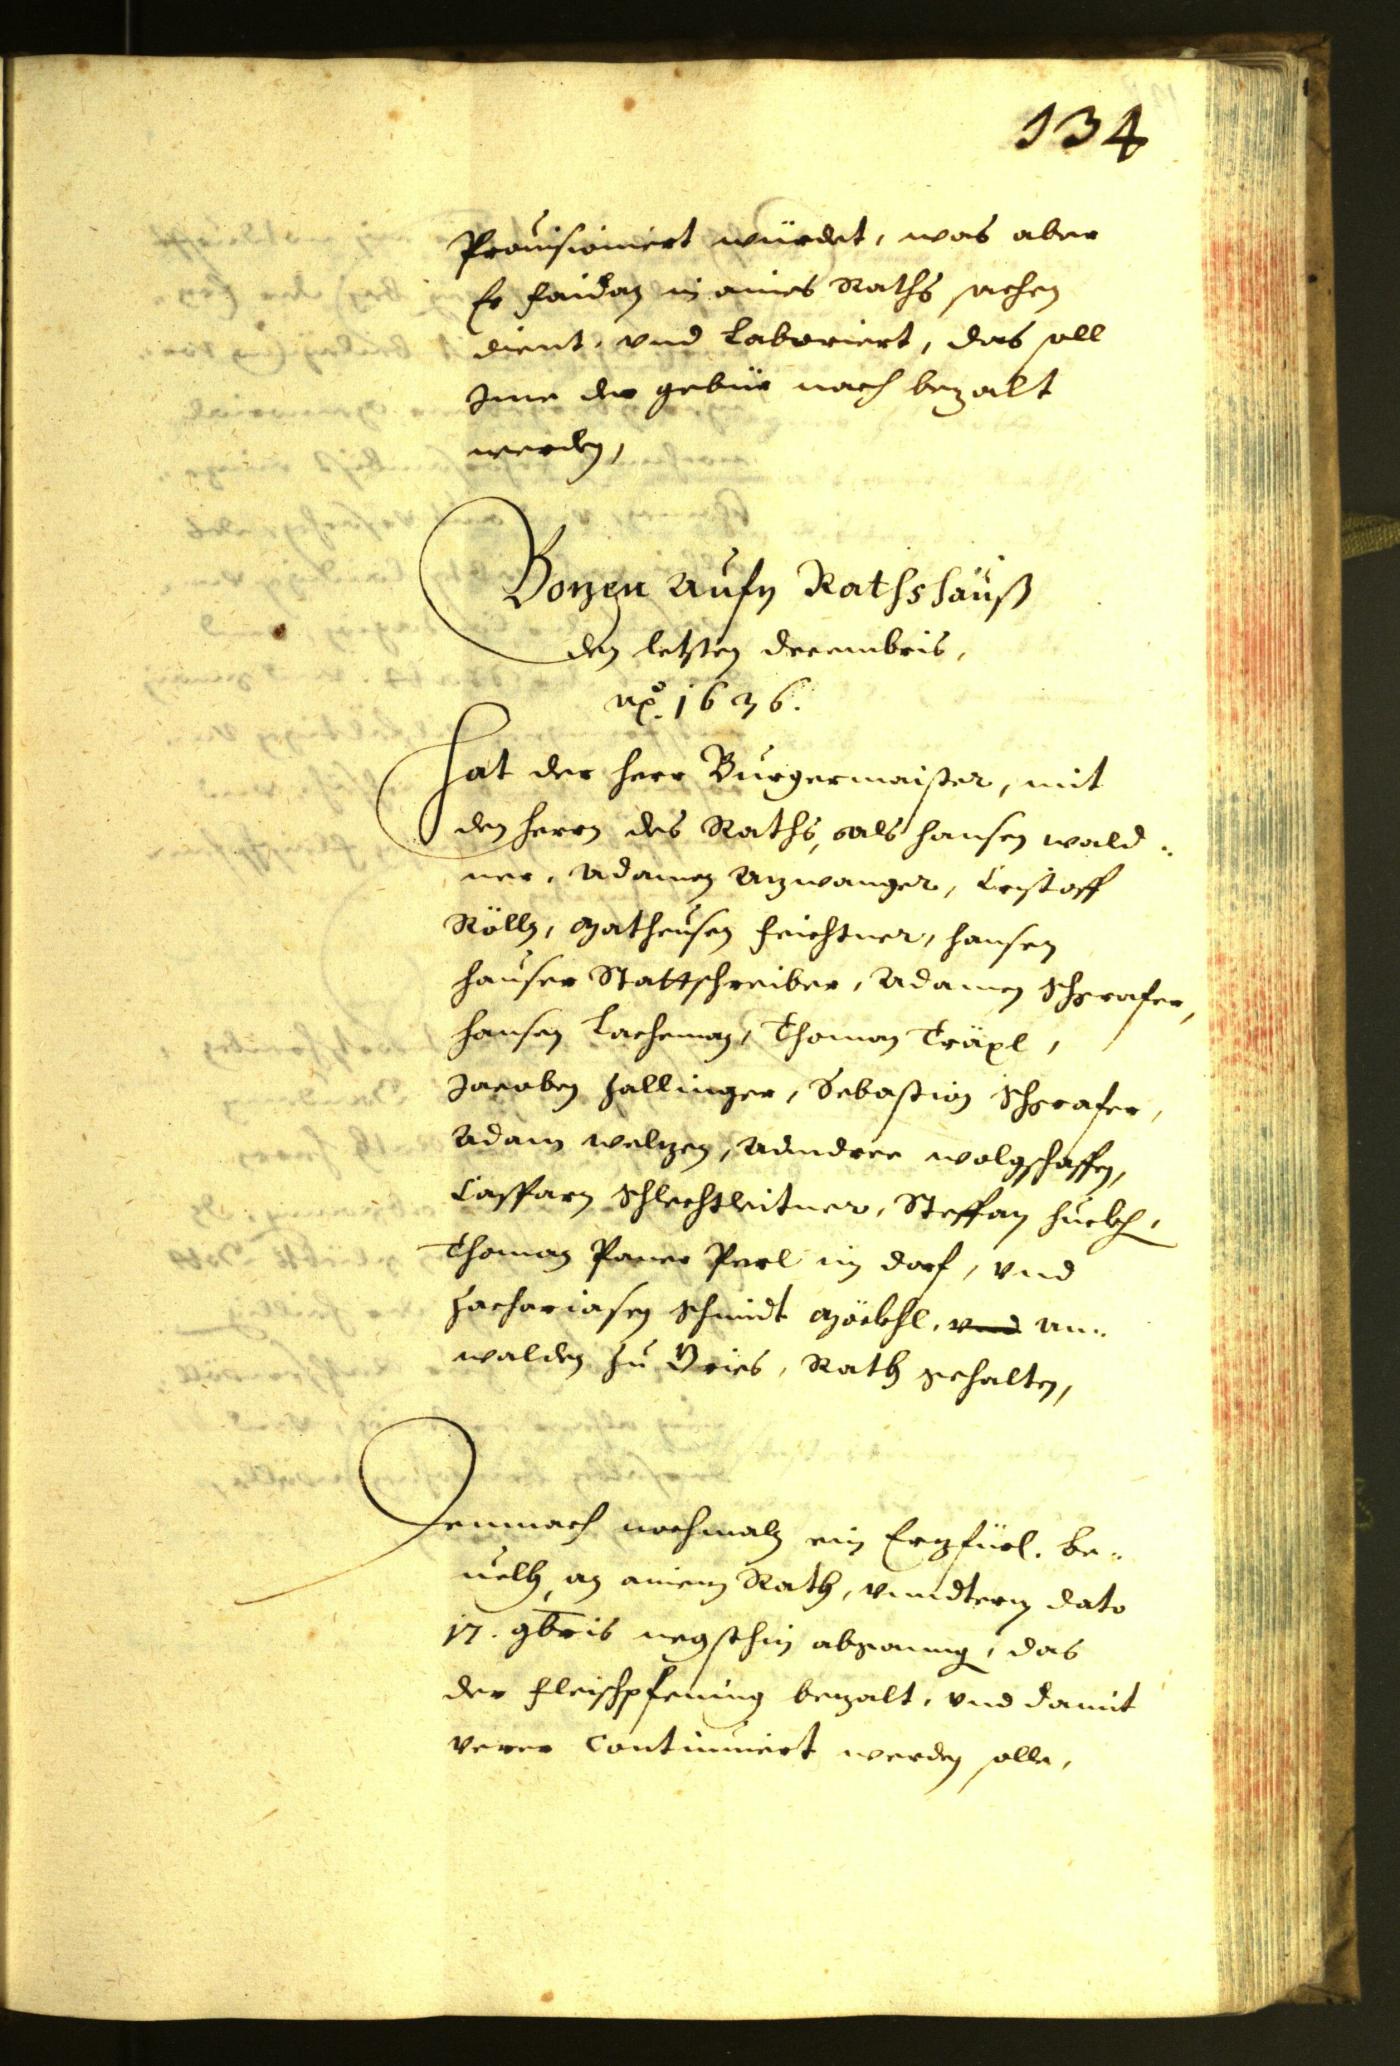 134
Prouisioniert würdet, was aber
Er Haidan in aines Raths sachen
dient, vnd Laboriert, das soll
Jme der gebür nach bezalt
werden,
Bozen Aufn Rathshauß
den letsten Decembris,
Ao. 1636.
Hat der Herr Burgermaister, mit
den Herrn des Raths, als Hansen Wald¬
ner, Adamen Azwanger, Cristoff
Rölln, Matheusen Feichtner, Hansen
Hauser Stattschreiber, Adamen Schgrafer,
Hansen Lacheman, Thoman Träxl,
Jacoben Zallinger, Sebastion Schgrafer,
Adam Welzen, Anndree Wolgschaffen,
Casparn Schlechtleitner, Steffan Hueber,
Thoman Paur Perl im Dorf, vnd
Zachariasen Schmidt Möckhl, vnd An¬
walden zu Gries, Rath gehalten,
Demnach nochmaln ein Erzfürl. Be¬
uelh, an ainem Rath, vnndterm dato
17. 9bris negsthin abganng, das
der Fleischpfening bezalt, vnd damit
verer Continuiert werden solle,